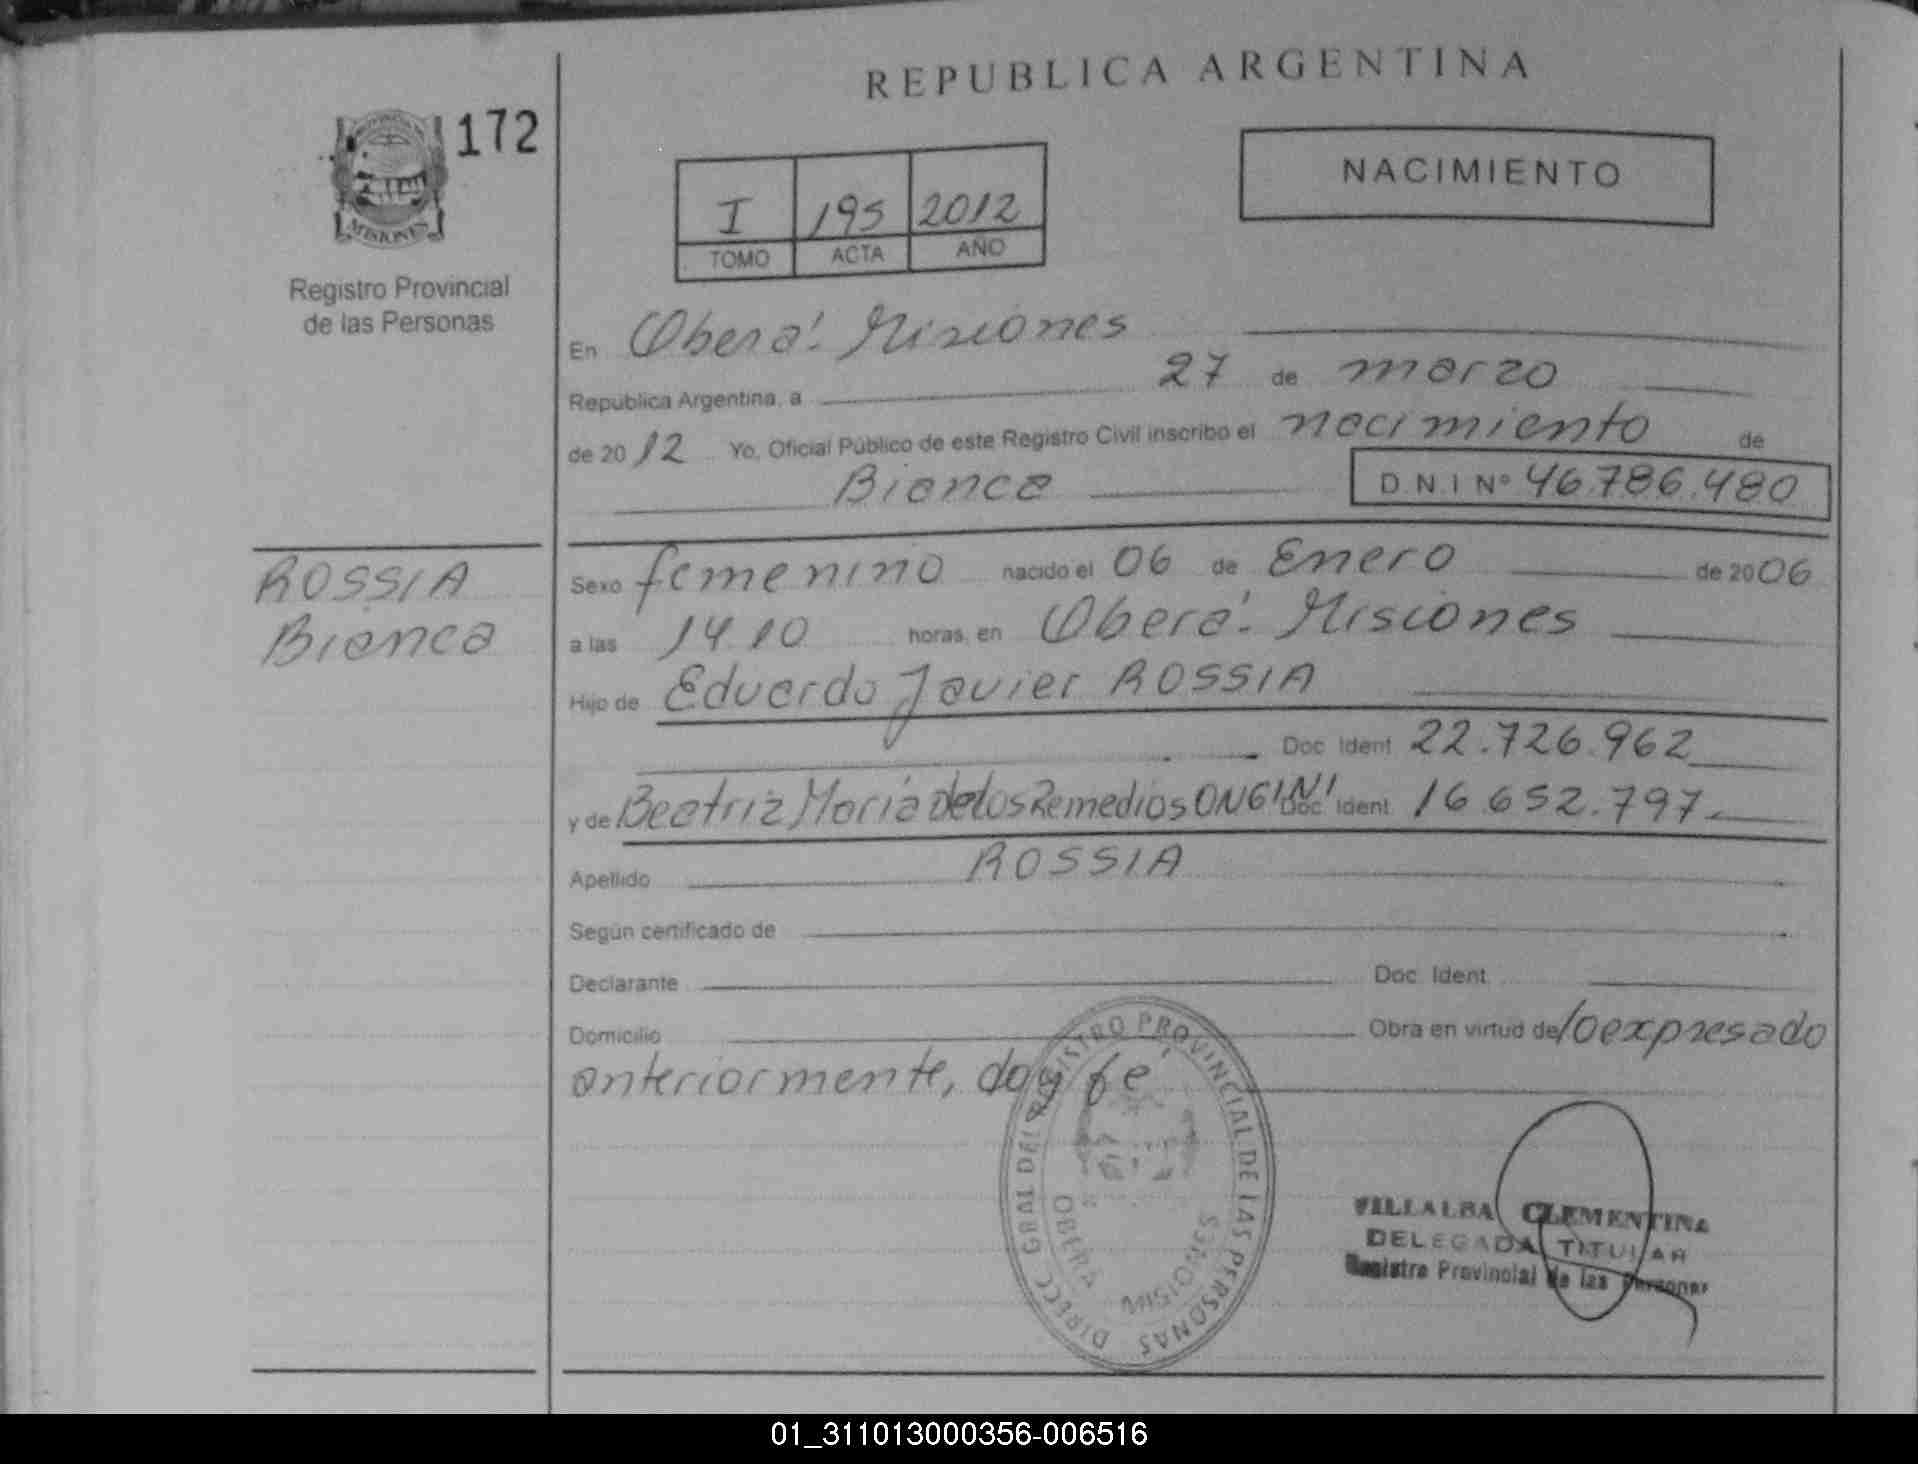 REPUBLICA ARGENTINA
172
MISIONES
Registro Provincial
de las Personas
NACIMIENTO
I 195 2012
TOMO ACTA AÑO
En Oberá. Misiones
República Argentina, a 27 de marzo
de 2012 Yo, Oficial Público de este Registro Civil inscribo el nacimiento de
Bianca D.N.I Nº 46.786.480
ROSSIA
Bianca
Sexo femenino nacido el 06 de Enero de 2006
a las 14.10 horas, en Oberá. Misiones
Hijo de Eduardo Javier ROSSIA
Doc. Ident. 22.726.962
y de Beatriz María de los Remedios ONGINI Doc. Ident. 16.652.797.
Apellido ROSSIA
Según certificado de
Declarante Doc. Ident.
Domicilio Obra en virtud de lo expresado
anteriormente, doy fé
DIRECC. GRAL DEL REGISTRO PROVINCIAL DE LAS PERSONAS
OBERÁ MISIONES
VILLALBA CLEMENTINA
DELEGADA TITULAR
Registro Provincial de las Personas
01_311013000356-006516